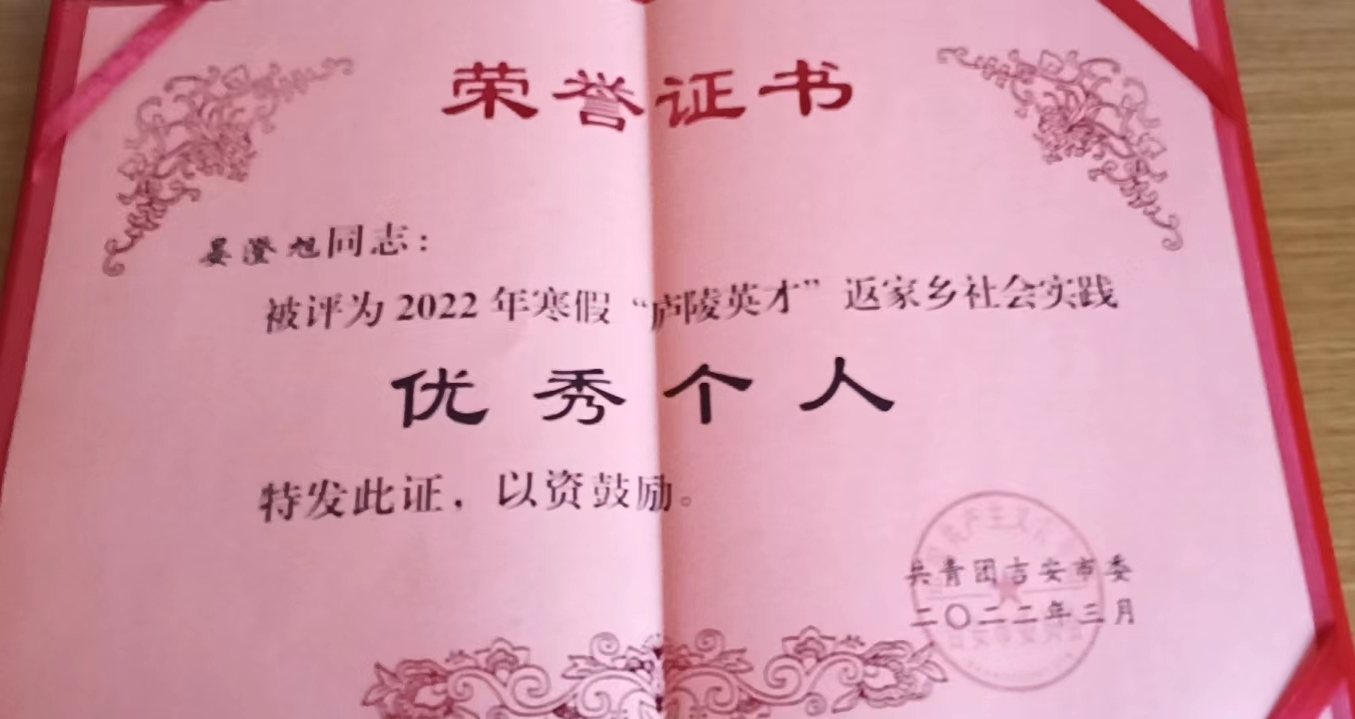 荣誉证书
晏澄旭同志：
被评为 2022 年寒假“庐陵英才”返家乡社会实践
优秀个人
特发此证，以资鼓励。
共青团吉安市委
二〇二二年三月